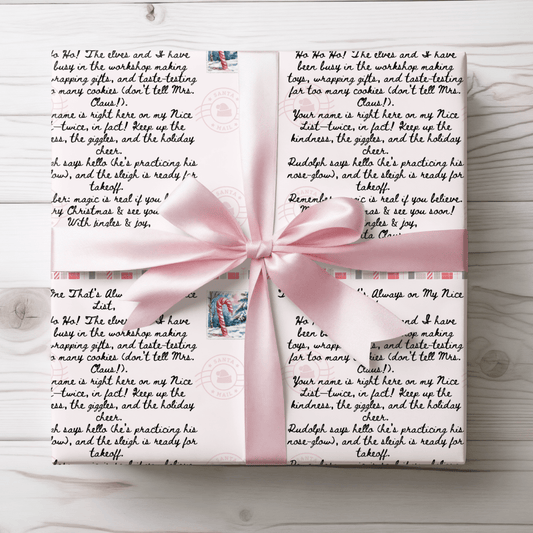 Ho Ho Ho! The elves and I have
busy in the workshop making
wrapping gifts, and taste-testing
many cookies (don't tell Mrs.
Claus!).
name is right here on my Nice
List—twice, in fact! Keep up the
the giggles, and the holiday
cheer.
says hello (he's practicing his
and the sleigh is ready for
takeoff.
magic is real if you
Christmas & see you
With jingles & joy,
Ho Ho Ho! The elves and I have
been busy in the workshop making
toys, wrapping gifts, and taste-testing
far too many cookies (don't tell Mrs.
Claus!).
Your name is right here on my Nice
List—twice, in fact! Keep up the
kindness, the giggles, and the holiday
cheer.
Rudolph says hello (he's practicing his
nose-glow), and the sleigh is ready for
takeoff.
Remember magic is real if you believe.
& see you soon!
& joy,
Claus
SANTA
MAIL
That's Always on My Nice
List,
Ho Ho! The elves and I
busy in the workshop making
wrapping gifts, and taste-testing
many cookies (don't tell Mrs.
Claus!).
name is right here on my Nice
List—twice, in fact! Keep up the
the giggles, and the holiday
cheer.
says hello (he's practicing his
and the sleigh is ready for
takeoff.
Always on My Nice
List,
and I have
been making
toys, and taste-testing
far too many cookies (don't tell Mrs.
Claus!).
Your name is right here on my Nice
List—twice, in fact! Keep up the
kindness, the giggles, and the holiday
cheer.
Rudolph says hello (he's practicing his
nose-glow), and the sleigh is ready for
takeoff.
SANTA
MAIL